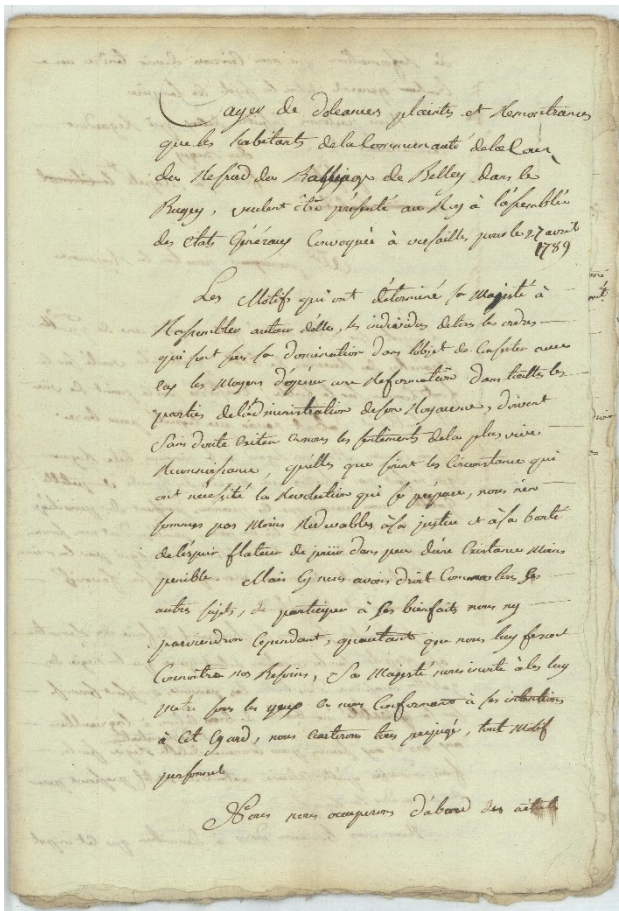 Cayer de doleances plaintes et Remontrances
que les habitants de la Communauté de la Cour
du Ressort du Balliage de Belley dans le
Bugey, veulent être présenté au Roy à l'assemblée
des etats Généraux Convoquée à versailles, pour le 27 avril
1789
Les Motifs qui ont déterminé sa Majesté à
Rassembler autour d'elle, les individus de tous les ordres
qui sont sous sa domination dans l'objet de Consulter avec
eux les Moyens d'opérer une Reformation dans toutes les
parties de l'administration de son Royaume, doivent
sans doute exiter en nous les sentiments de la plus vive
Reconnoissance, quelles que soint les Circonstance qui
ont nécésité la Revolution qui se prépare, nous n'en
sommes pas Moins Redevables à sa justice et à sa bonté
de l'éspoir flateur de jouir dans peu d'une Existance Moins
penible. Mais sy nous avons droit Comme les
autres sujets, de participer à ses bienfaits nous ny
parviendron Cependant, qu'autant que nous luy feront
Connoitre nos Besoins, Sa Majesté nous invite à les luy
metre sous les yeux en nous Conformant à ses intentions
à Cet Egard, nous écarterons tous prejugé, tout Motif
personnel
Nous nous occuperons d'abord des